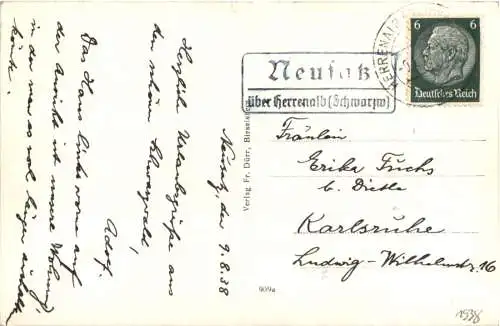 Neusatz, den 9.6.38
Herzliche Urlaubsgrüße aus
dem schönen Schwarzwald,
Adolf.
Das Haus links vorne auf
der Ansicht ist unsere Wohnung
in der man es wohl länger aushalten
könnte.
Verlag Fr. Dürr,
909a
HERRENALB
Neusatz
über Herrenalb (Schwarzw)
6 6
Deutsches Reich
Fräulein
Erika Fuchs
b. Dietle
Karlsruhe
Ludwig-Wilhelmstr. 16
1938